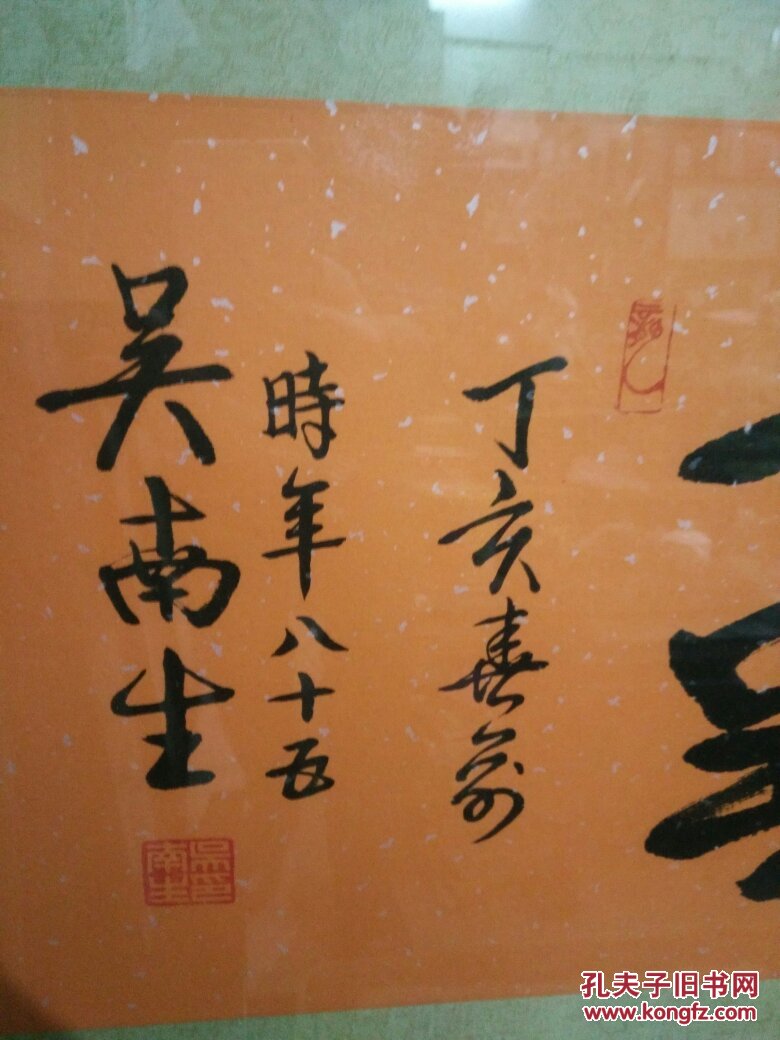 丁亥春前
時年八十五
吴南生
吴南生印
孔夫子旧书网
www.kongfz.com